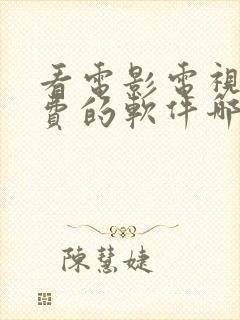 看電影電視
費的軟件哪
陳慧婕